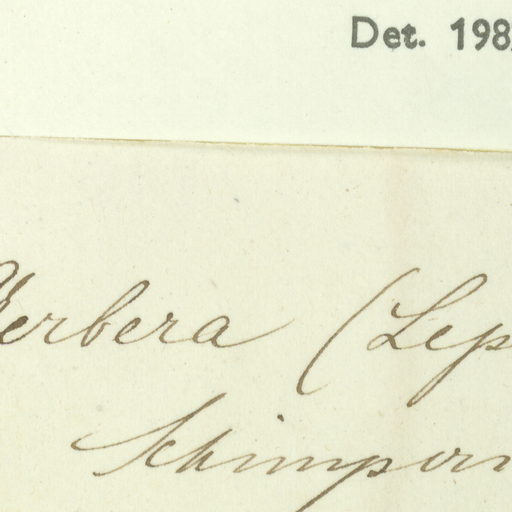 Det. 198
Gerbera (Lep
Schimper